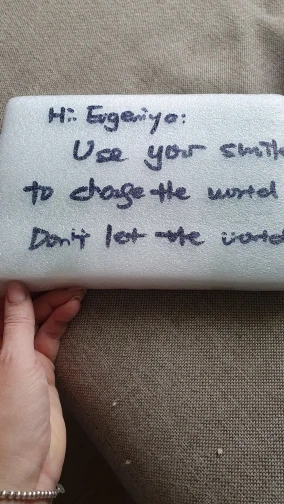 Hi: Evgeniya:
Use your smile
to change the world
Don't let the world